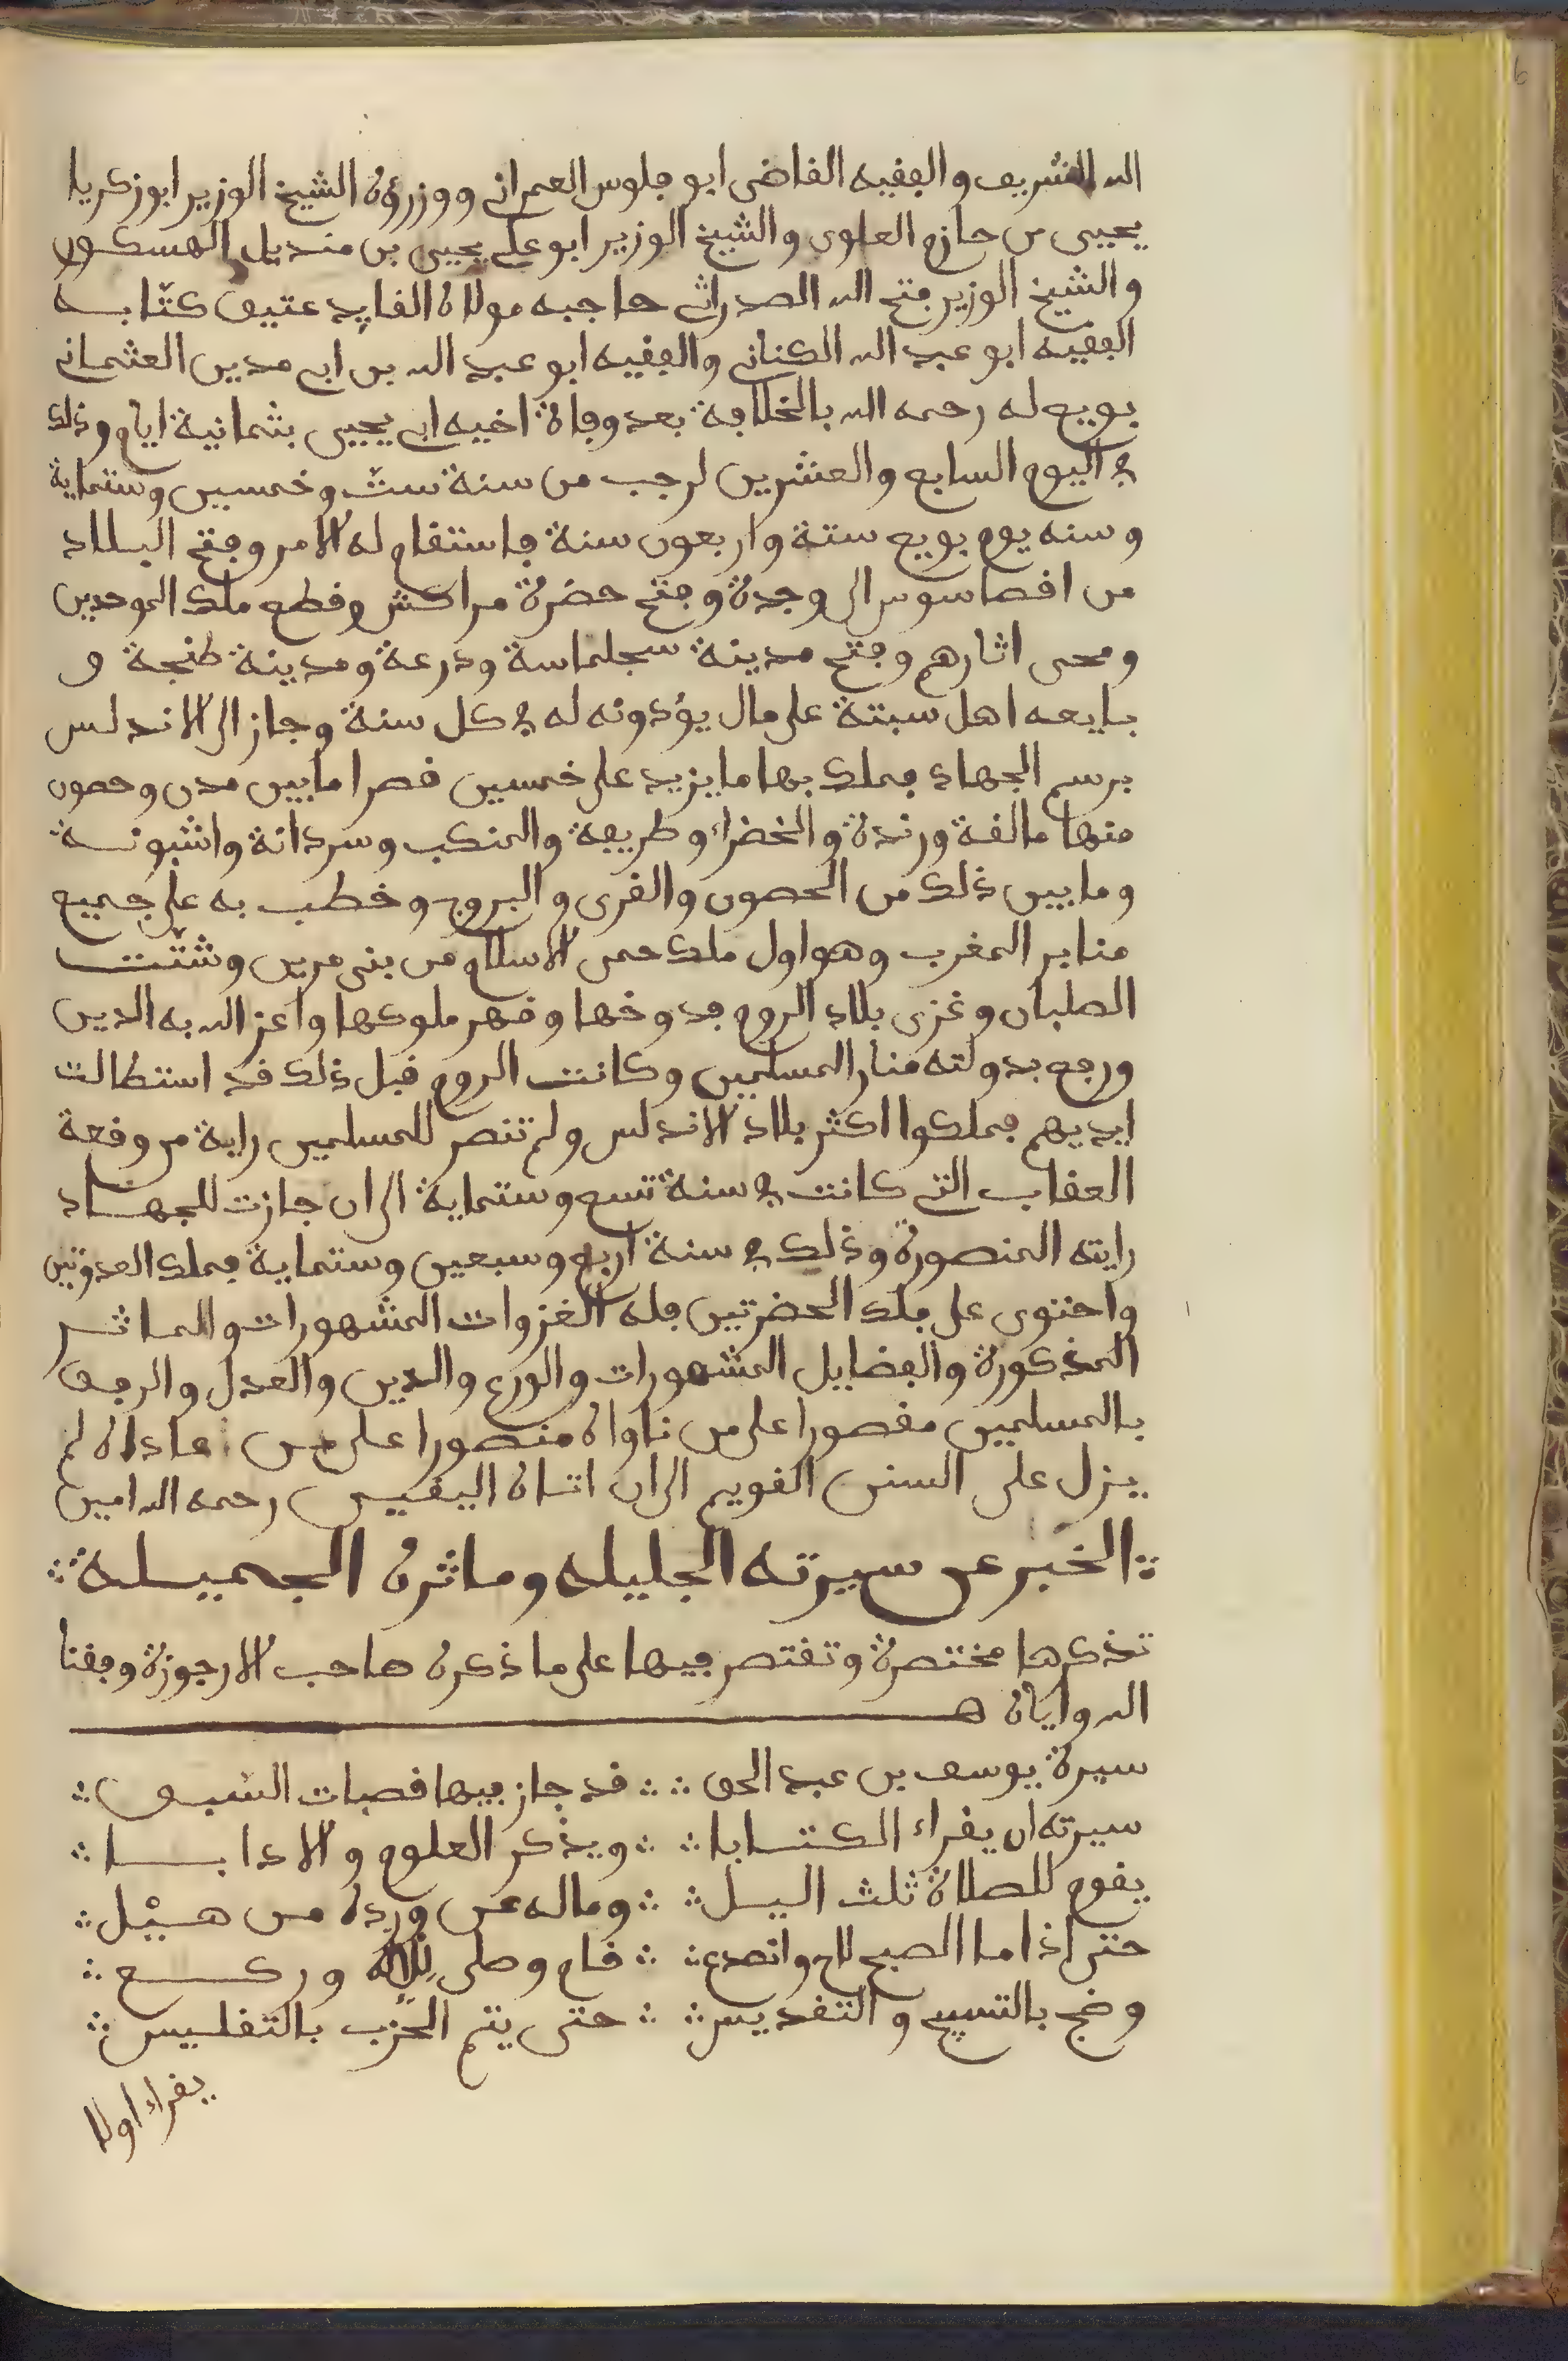 الله الشريف والفقيه القاضى ابو جلوس العمرانى ووزرؤه الشيخ الوزير ابو زكرياء
يحيى بن حازم العلوى والشيخ الوزير ابو على يحيى بن منديل الهسكورى
والشيخ الوزير فتح الله الصدراتى حاجبه مولاه القايد عتيق كتّابه
الفقيه ابو عبد الله الكنانى والفقيه ابو عبد الله بن ابى مدين العثمانى
بويع له رحمه الله بالخلافة بعد وفاة اخيه ابى يحيى بثمانية ايام وذلك
فى اليوم السابع والعشرين لرجب من سنة ستّ وخمسين وستماية
وسنه يوم بويع ستة واربعون سنة فاستقام له الامر وفتح البلاد
من اقصا سوس الى وجدة وفتح حضرة مراكش وقطع ملك الموحدين
ومحى اثارهم وفتح مدينة سجلماسة ودرعة ومدينة طنجة و
بايعه اهل سبتة على مال يؤدونه له فى كل سنة وجاز الى الاندلس
برسم الجهاد فملك بها ما يزيد على خمسين قصرا ما بين مدن وحصون
منها مالقة ورندة والخضراء وطريفة والمنكب وسردانة واشبونة
وما بين ذلك من الحصون والقرى والبروج وخطب به على جميع
منابر المغرب وهو اول ملك حمى الاسلام من بنى مرين وشتّت
الصلبان وغزى بلاد الروم فدوخها وقهر ملوكها واعز الله به الدين
ورفع بدولته منار المسلمين وكانت الروم قبل ذلك قد استطالت
ايديهم فملكوا اكثر بلاد الاندلس ولم تنصر للمسلمين راية من وقعة
العقاب التى كانت فى سنة تسع وستماية الى ان جازت للجهاد
رايته المنصورة وذلك فى سنة اربع وسبعين وستماية فملك العدوتين
واحتوى على ملك الحضرتين فله الغزوات المشهورات والماثر
المذكورة والفضايل المشهورات والورع والدين والعدل والرفق
بالمسلمين مقصورا على من ناواه منصورا على من عاداه لم
يزل على السنن القويم الى ان اتاه اليقين رحمه الله امين
الخبر عن سيرته الجليله وماثره الجميلة
تذكرها مختصرة وتقتصر فيها على ما ذكره صاحب الارجوزة وفقنا
الله واياه هـ
سيرة يوسف بن عبد الحق ∴ ∴ قد جاز فيها قصبات السّبق ∴
سيرته ان يقراء الكتابا ∴ ∴ ويذكر العلوم والادابا ∴
يقوم للصلاة ثلث اليل ∴ ∴ وماله عن ورده من هيْل ∴
حتى اذا ما الصبح لاح وانصدع ∴ ∴ قام وصلى للاله وركع ∴
وضج بالتسبيح والتقديس ∴ ∴ حتى يتم الحزب بالتغليس ∴
يقراء اولا